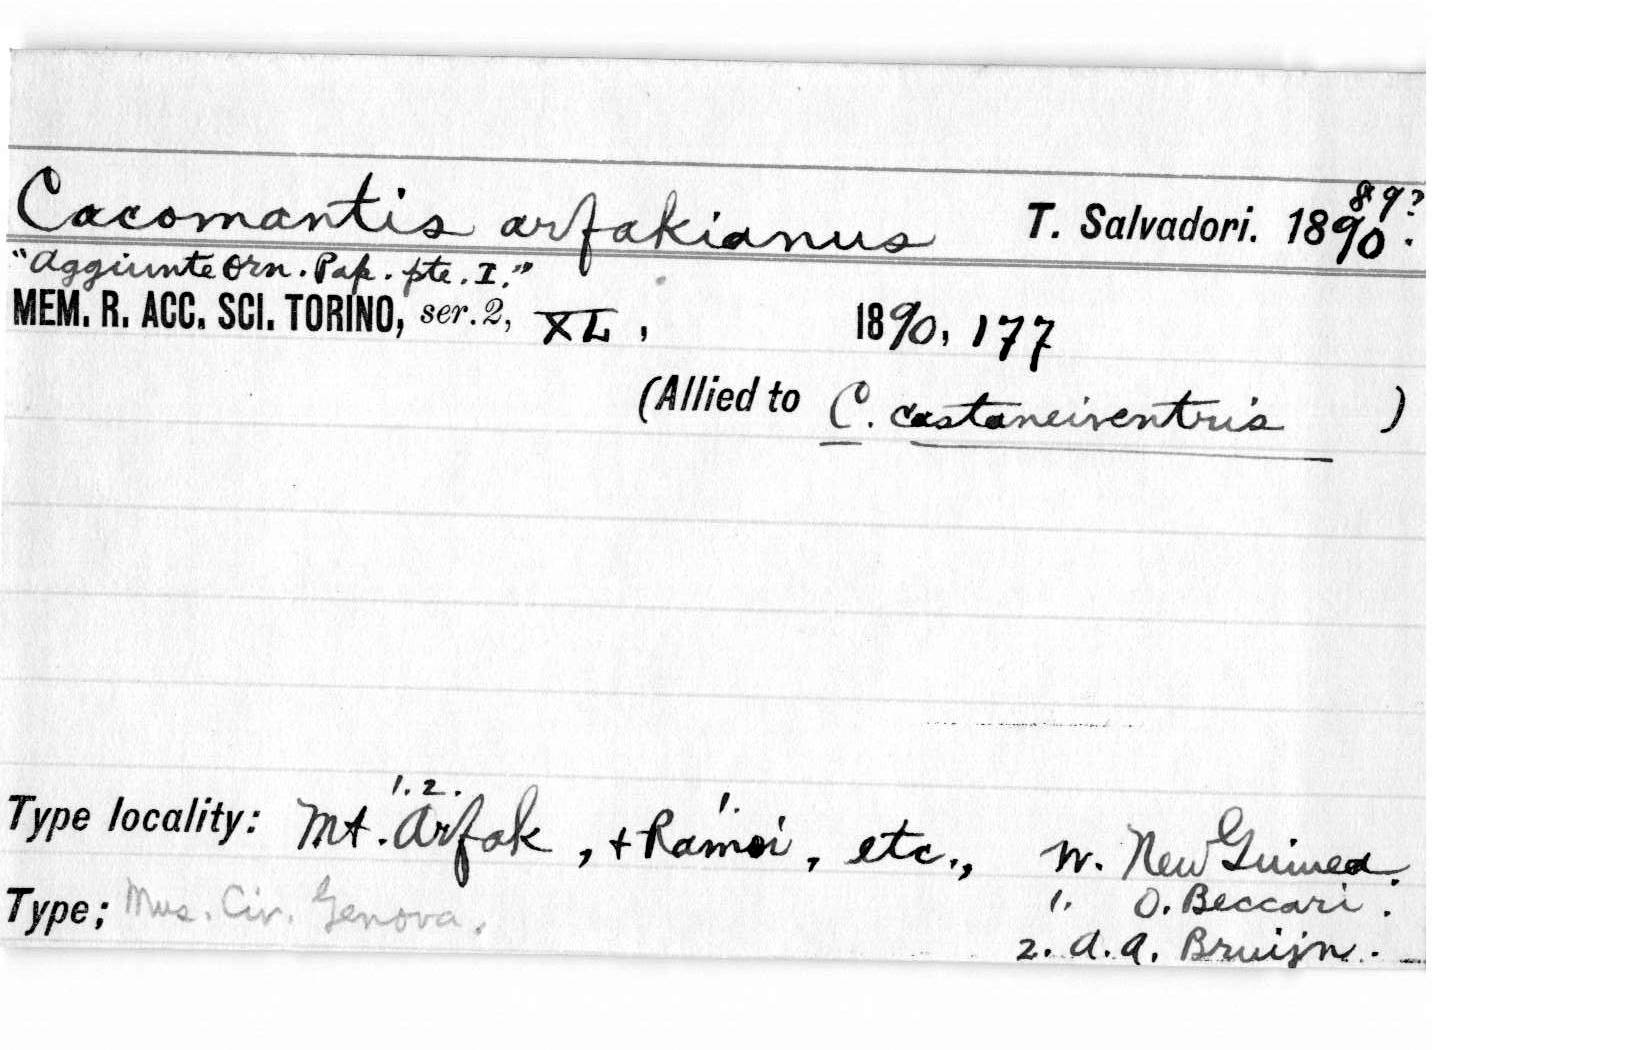 Cacomantis arfakianus T. Salvadori. 1890. 89?
"Aggiunte Orn. Pap. pte. I."
MEM. R. ACC. SCI. TORINO, ser. 2, XL, 1890, 177
(Allied to C. castaneiventris )
1. 2. 1.
Type locality: Mt. Arfak, + Ramoi, etc., W. New Guinea.
Type; Mus. Civ. Genova. 1. O. Beccari.
2. A. A. Bruijn.